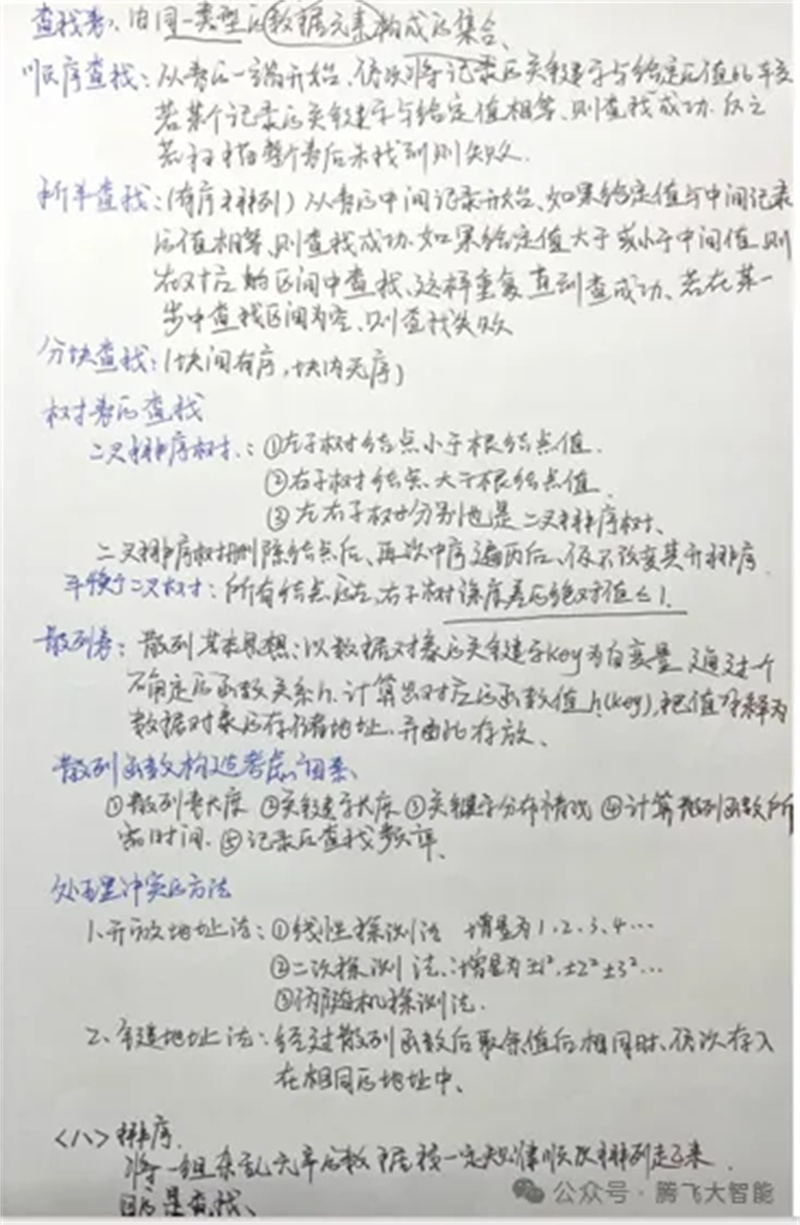 查找表:由同一类型的数据元素构成的集合、
顺序查找:从表的一端开始、依次将记录的关键字与给定的值比较
若某个记录的关键字与给定值相等、则查找成功.反之
若扫描整个表后未找到则失败.
折半查找:(有序排列)从表的中间记录开始、如果给定值与中间记录
的值相等、则查找成功.如果给定值大于或小于中间值,则
在对应的区间中查找、这样重复,直到查成功、若在某一
步中查找区间为空、则查找失败
分块查找:(块间有序,块内无序)
树表的查找
二叉排序树:①左子树结点小于根结点值.
②右子树结点大于根结点值
③左右子树分别也是二叉排序树、
二叉排序树删除结点后、再次中序遍历后、仍不改变其升排序.
平衡二叉树:所有结点的左、右子树深度差的绝对值≤1.
散列表:散列基本思想:以数据对象的关键字key为自变量,通过一个
确定的函数关系h.计算出对应的函数值h(key),把值解释为
数据对象的存储地址.并由此存放、
散列函数构造考虑因素、
①散列表长度 ②关键字长度 ③关键字分布情况 ④计算散列函数所
需时间.⑤记录的查找频率、
处理冲突的方法
1、开放地址法:①线性探测法 增量为1、2、3、4…
②二次探测法、增量为±1²,±2²±3²…
③伪随机探测法.
2、链地址法:经过散列函数后取余值后相同时、依次存入
在相同的地址中、
<八>排序.
将一组杂乱无章的数据按一定规律顺次排列起来.
目的是查找、
公众号·腾飞大智能